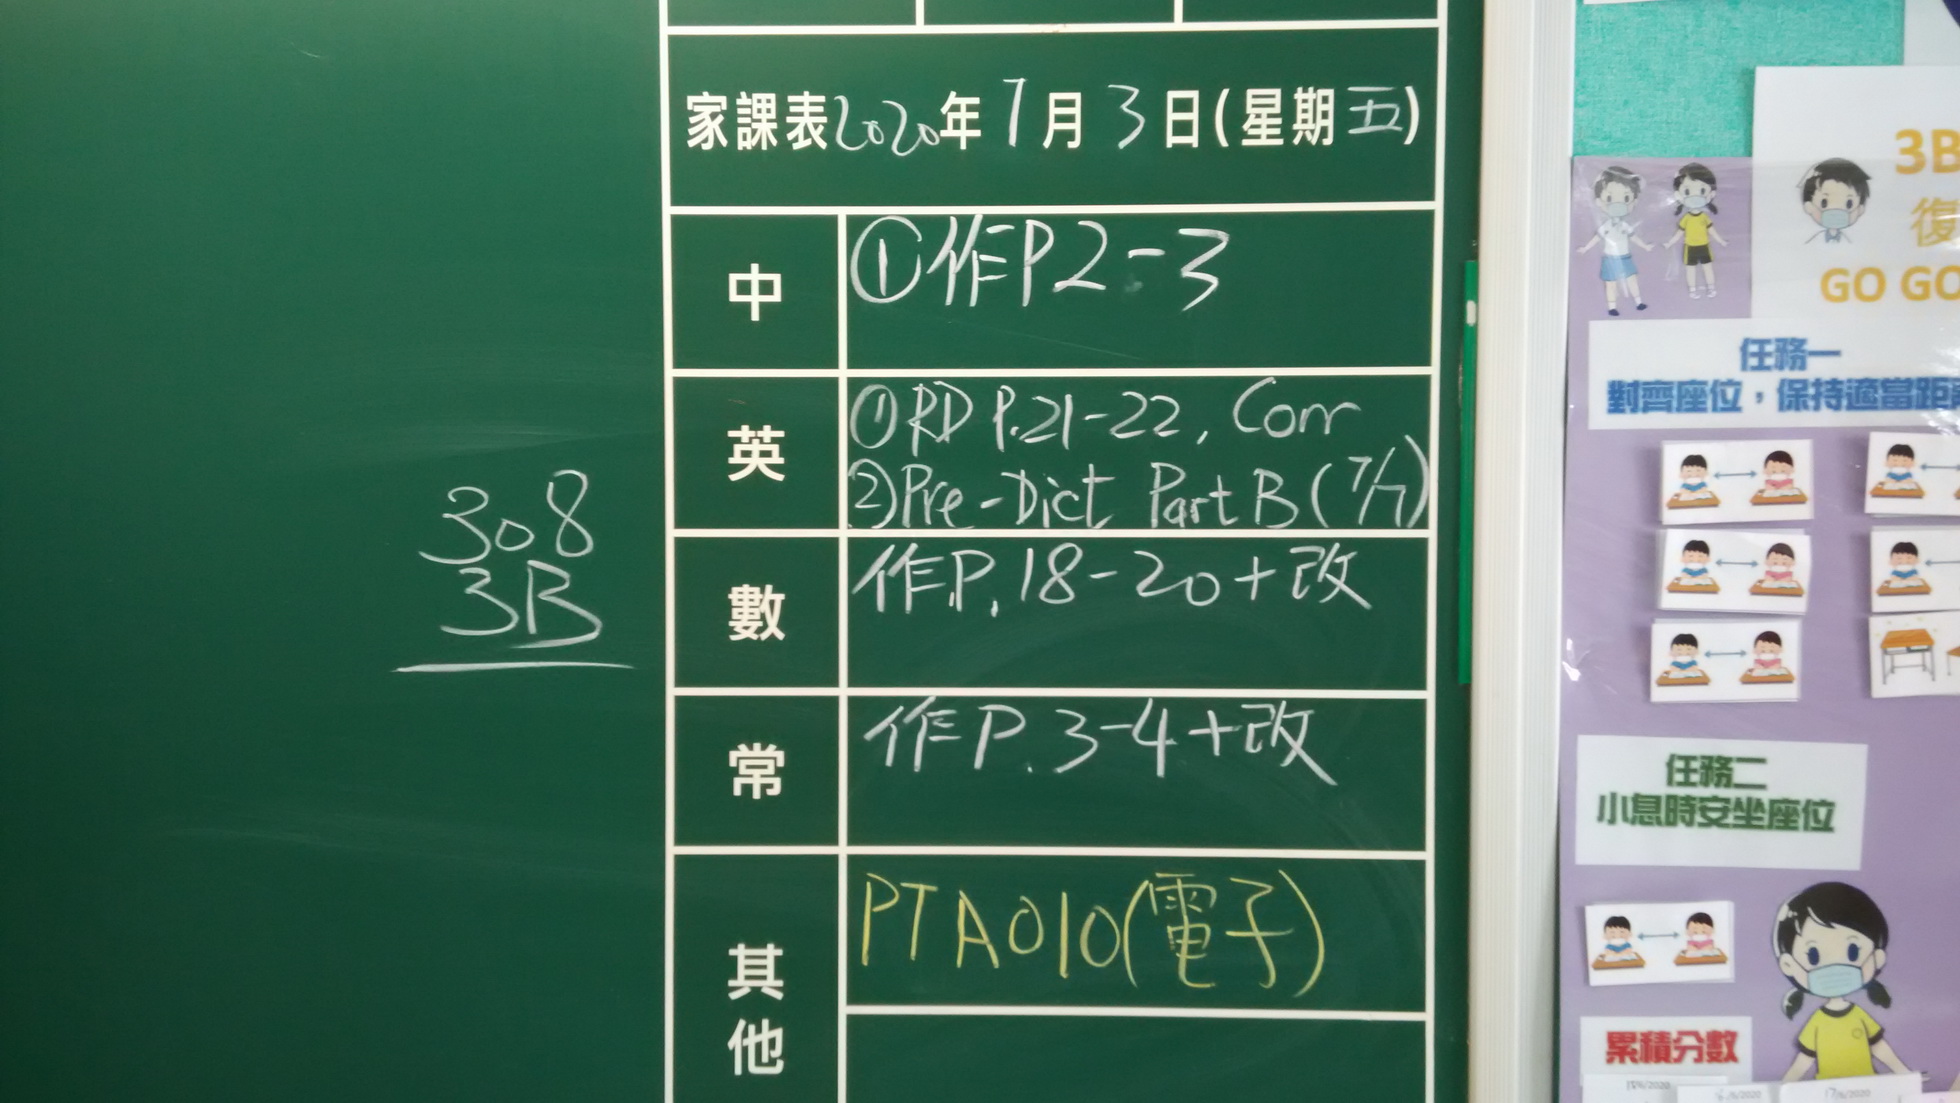 家課表2020年7月3日(星期五)
中
①作P2-3
英
①RD P.21-22, Corr
②Pre-Dict Part B (7/7)
數
作P.18-20+改
常
作P.3-4+改
其他
PTA010(電子)
308
3B
3B
復
GO GO
任務一
對齊座位,保持適當距
任務二
小息時安坐座位
累積分數